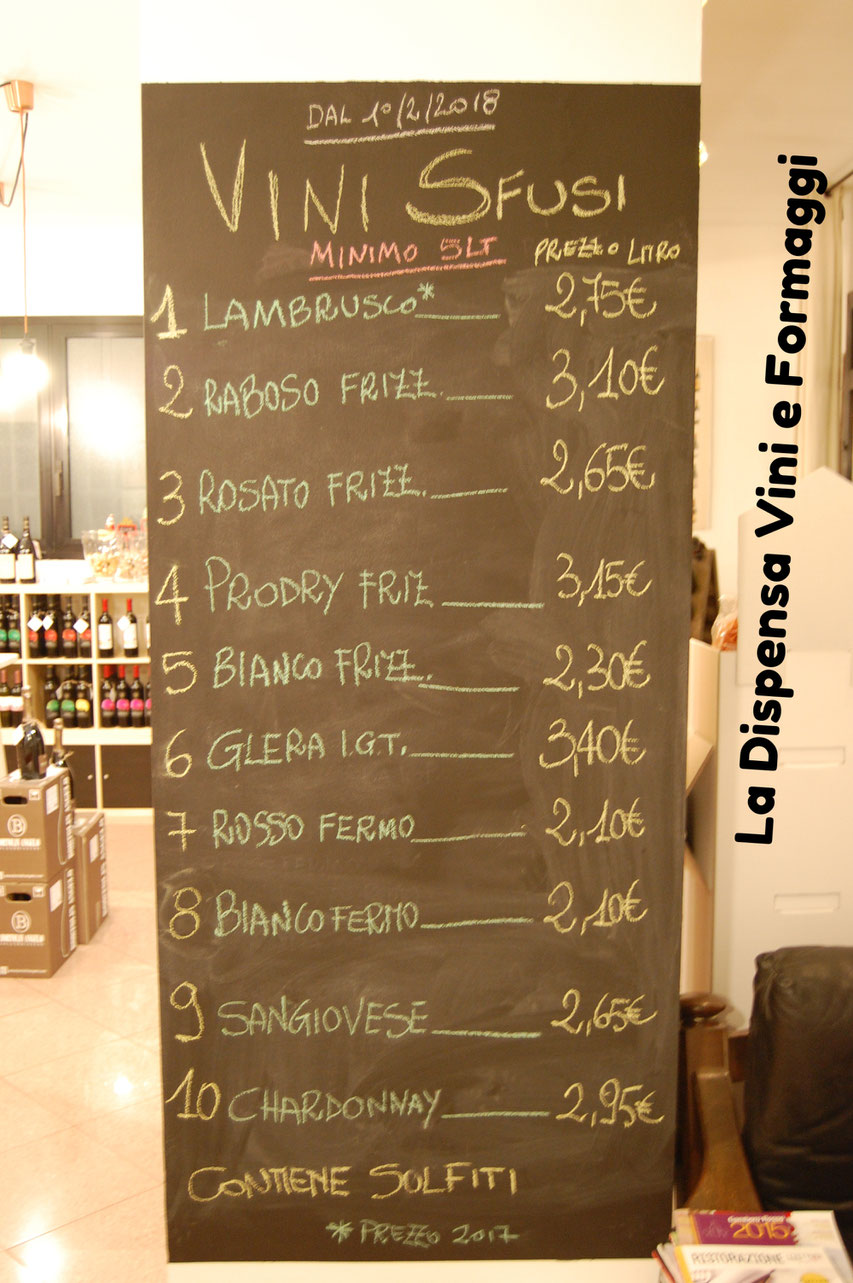 DAL 1°/2/2018
VINI SFUSI
MINIMO 5LT PREZZO LITRO
1 LAMBRUSCO* 2,75€
2 RABOSO FRIZZ. 3,10€
3 ROSATO FRIZZ. 2,65€
4 PRODRY FRIZ 3,15€
5 BIANCO FRIZZ. 2,30€
6 GLERA I.G.T. 3,40€
7 ROSSO FERMO 2,10€
8 BIANCO FERMO 2,10€
9 SANGIOVESE 2,65€
10 CHARDONNAY 2,95€
CONTIENE SOLFITI
* PREZZO 2017
La Dispensa Vini e Formaggi
B
B
2015
RISTORAZIONE